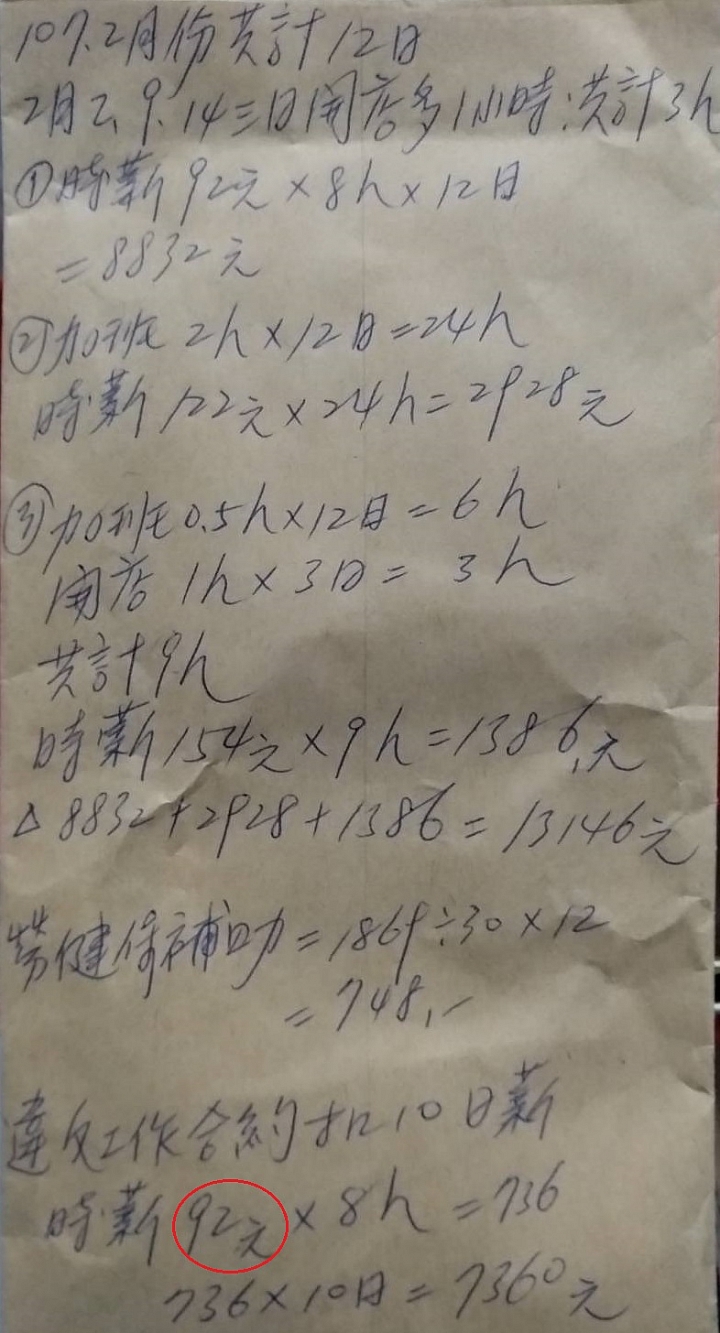 107.2月份共計12日
2月2、9、14三日開店多1小時:共計3h
①時薪92元×8h×12日
=8832元
②加班2h×12日=24h
時薪122元×24h=2928元
③加班0.5h×12日=6h
開店1h×3日=3h
共計9h
時薪154元×9h=1386元
△8832+2928+1386=13146元
勞健保補助=1869÷30×12
=748.-
違反工作合約扣10日薪
時薪92元×8h=736
736×10日=7360元